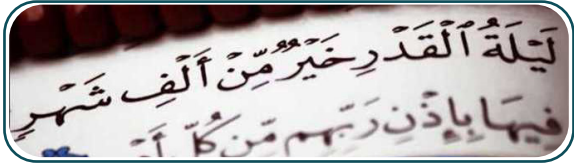 لَيْلَةُ ٱلْقَدْرِ خَيْرٌ مِّنْ أَلْفِ شَهْرٍ
فِيهَا بِإِذْنِ رَبِّهِم مِّن كُلِّ